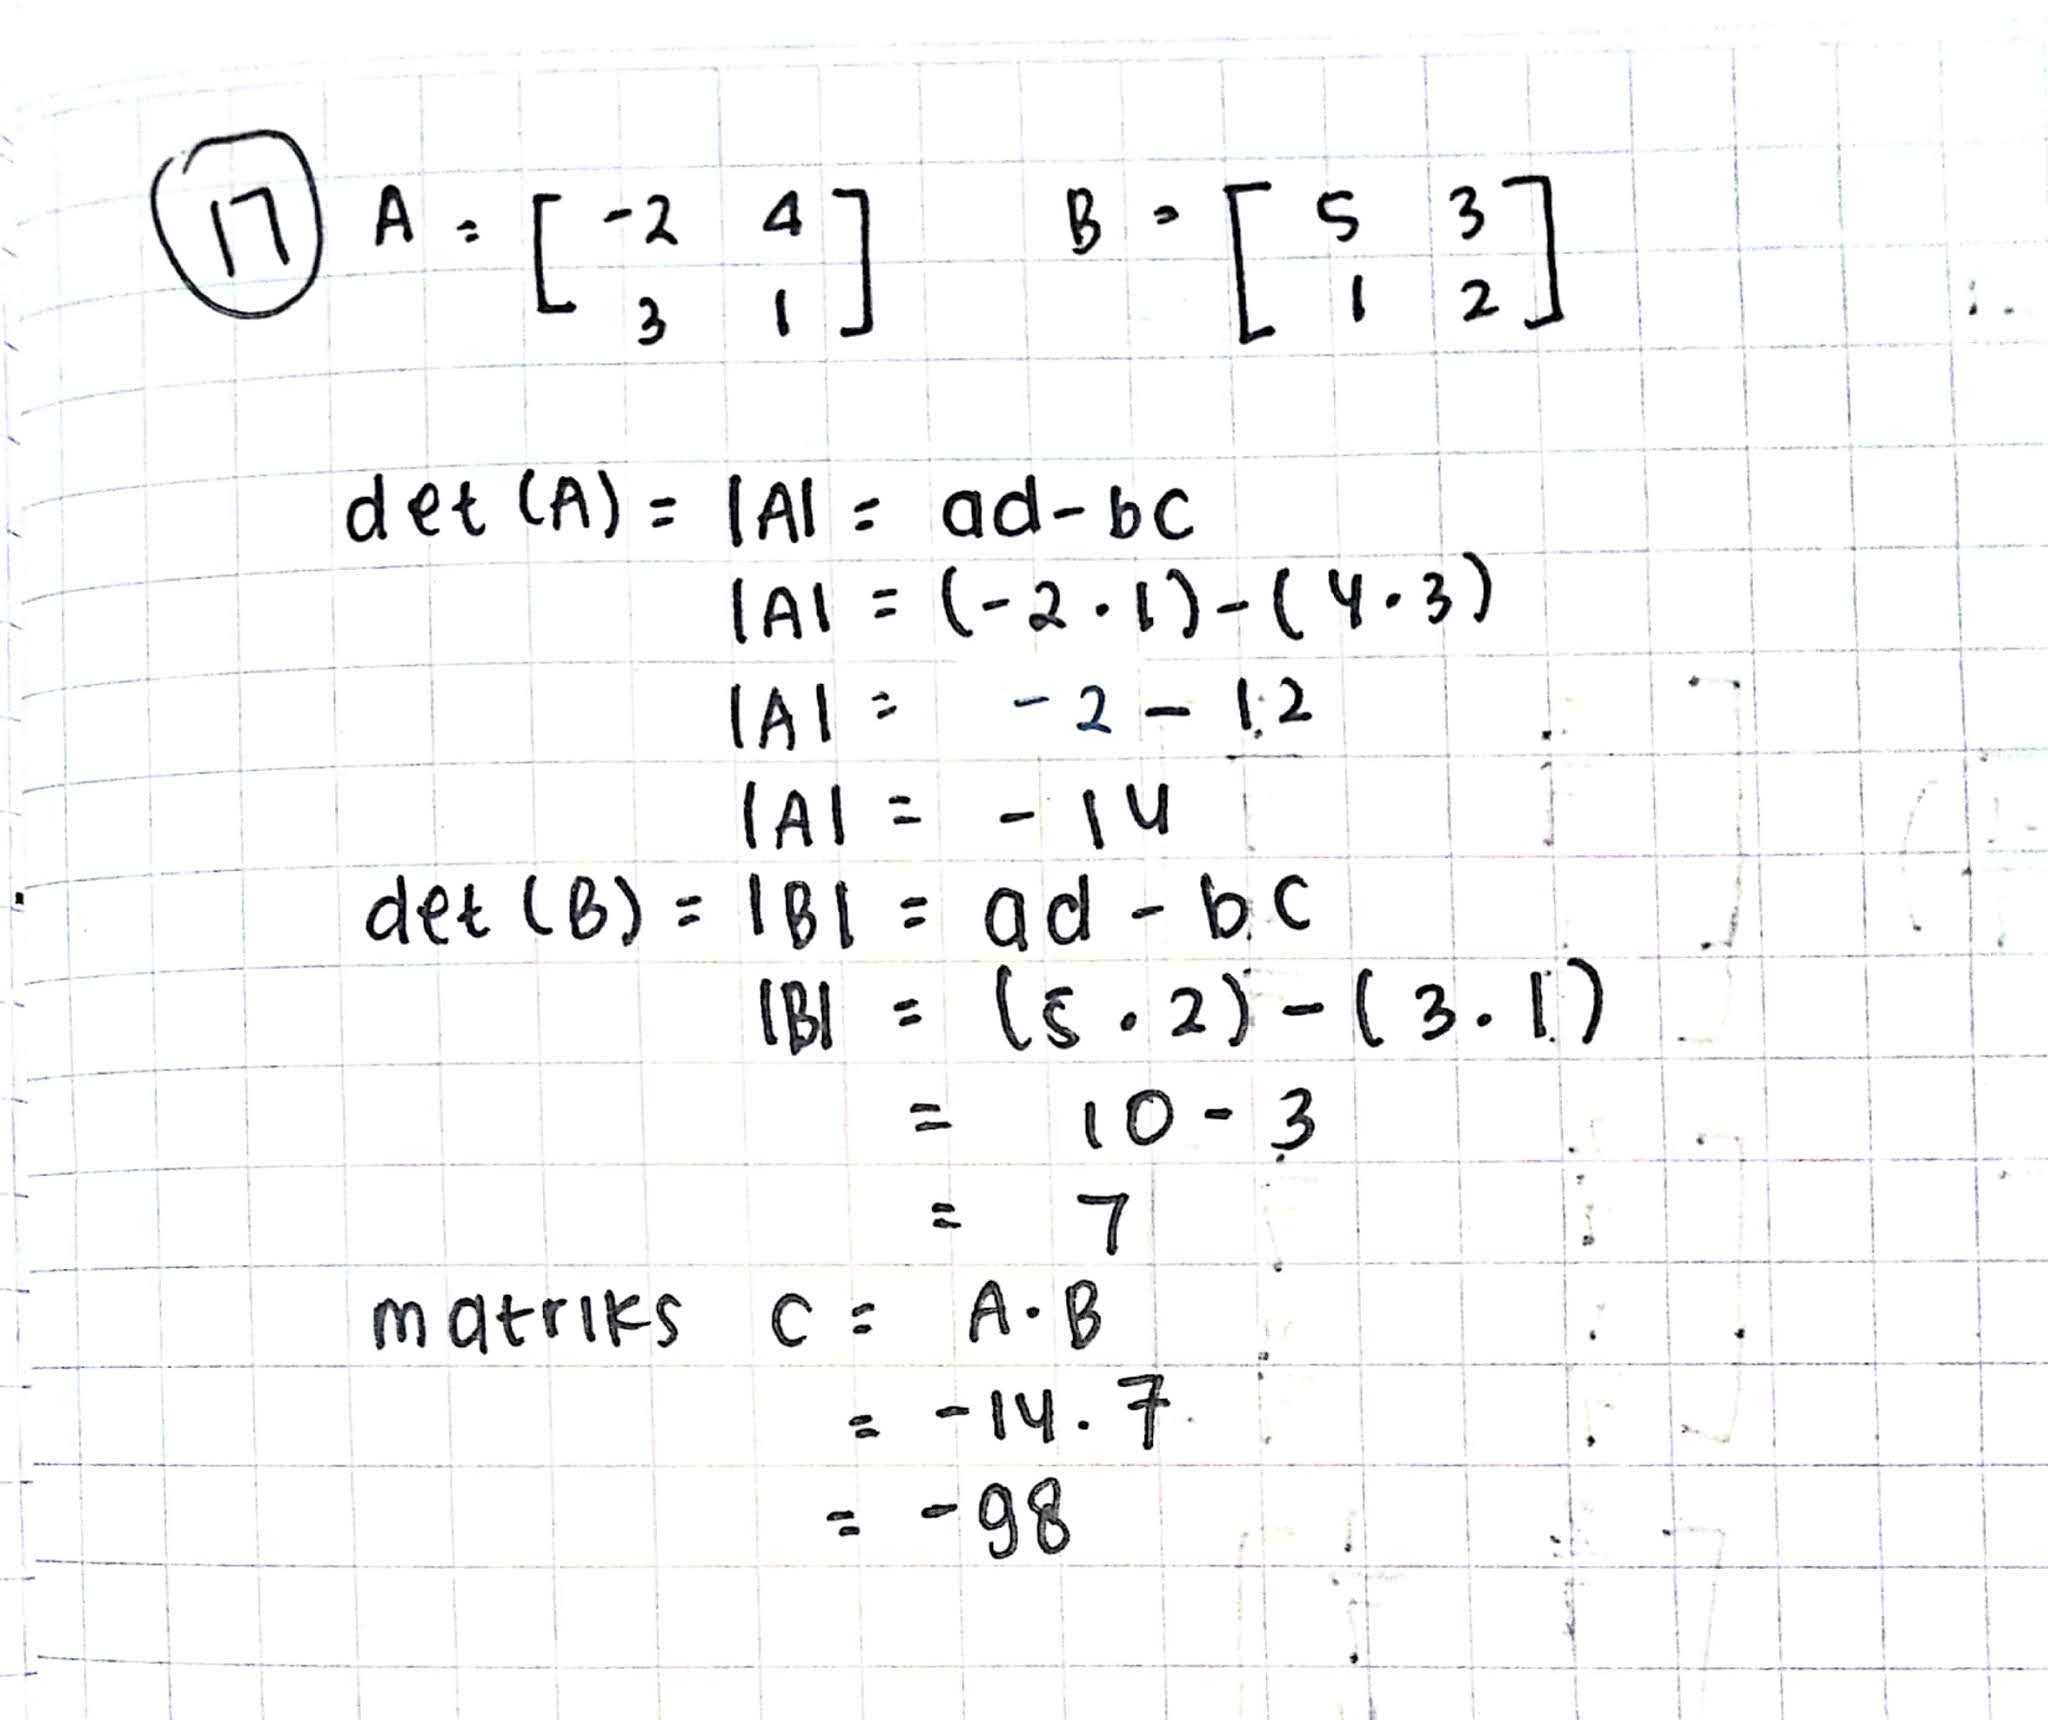 17 A = [ -2 4 ] B = [ 5 3 ]
[ 3 1 ] [ 1 2 ]
det (A) = |A| = ad - bc
|A| = (-2 · 1) - (4 · 3)
|A| = -2 - 12
|A| = -14
det (B) = |B| = ad - bc
|B| = (5 · 2) - (3 · 1)
= 10 - 3
= 7
matriks C = A · B
= -14 · 7
= -98